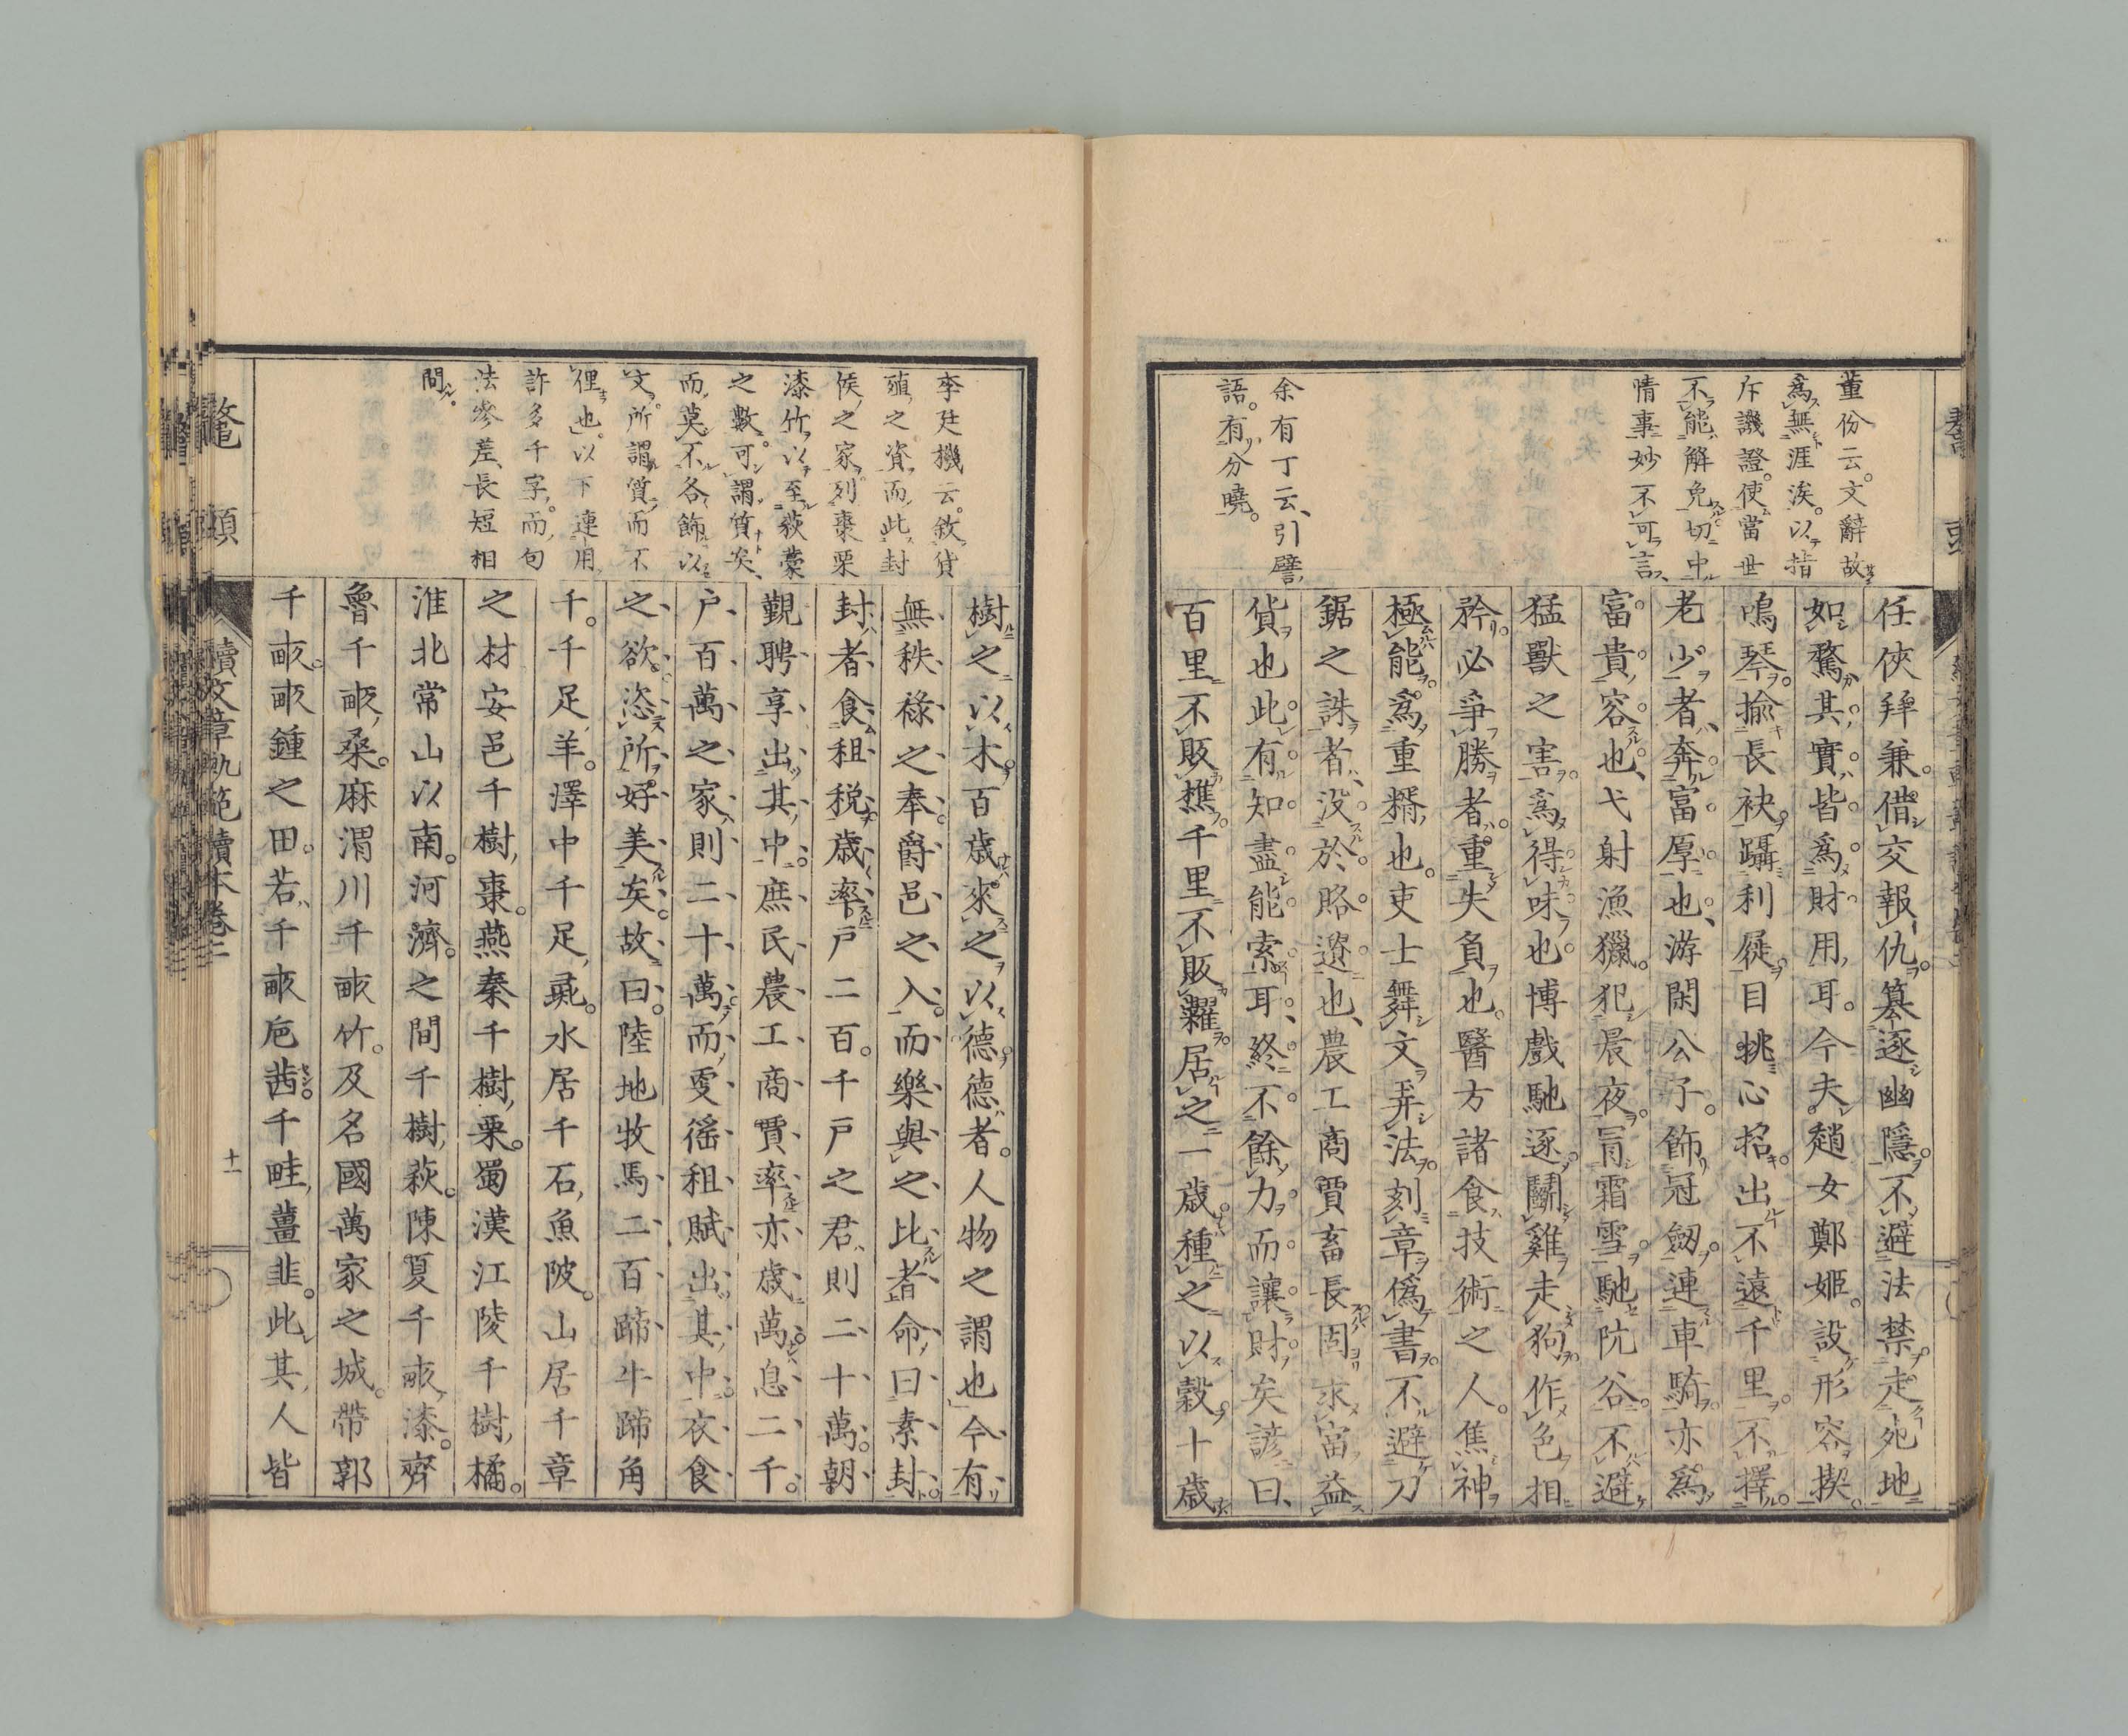 董份云文辭故
爲無涯涘以指
斥譏證使當世
不能解免切中
情事妙不可言
余有丁云引譬
語有分曉
任俠拜兼借交報仇篡逐幽隱不避法禁走死地
如騖其實皆爲財用耳今夫趙女鄭姬設形容揳
鳴琴揄長袂躡利屣目挑心招出不遠千里不擇
老少者奔富厚也游閑公子飾冠劔連車騎亦爲
富貴容也弋射漁獵犯晨夜冐霜雪馳阬谷不避
猛獸之害爲得味也博戲馳逐鬭雞走狗作色相
矜必爭勝者重失負也醫方諸食技術之人焦神
極能爲重糈也吏士舞文弄法刻章僞書不避刀
鋸之誅者没於賂遺也農工商賈畜長固求富益
貨也此有知盡能索耳終不餘力而讓財矣諺曰
百里不販樵千里不販糶居之一歲種之以穀十歲
李廷機云敘貨
殖之資而此封
侯之家列棗栗
漆竹以至荻藁
之數可謂質矣
而莫不各飾以
文所謂質而不
俚也以下連用
許多千字而句
法參差長短相
間
樹之以木百歲來之以德德者人物之謂也今有
無秩祿之奉爵邑之入而樂與之比者命曰素封
封者食租税歲率戸二百千戸之君則二十萬朝
覲聘享出其中庶民農工商賈率亦歲萬息二千
戸百萬之家則二十萬而更徭租賦出其中衣食
之欲恣所好美矣故曰陸地牧馬二百蹄牛蹄角
千千足羊澤中千足彘水居千石魚陂山居千章
之材安邑千樹棗燕秦千樹栗蜀漢江陵千樹橘
淮北常山以南河濟之間千樹萩陳夏千畞漆齊
魯千畞桑麻渭川千畞竹及名國萬家之城帶郭
千畞畞鍾之田若千畞巵茜千畦薑韭此其人皆
鼇頭
續文章軌範讀本卷三
十一